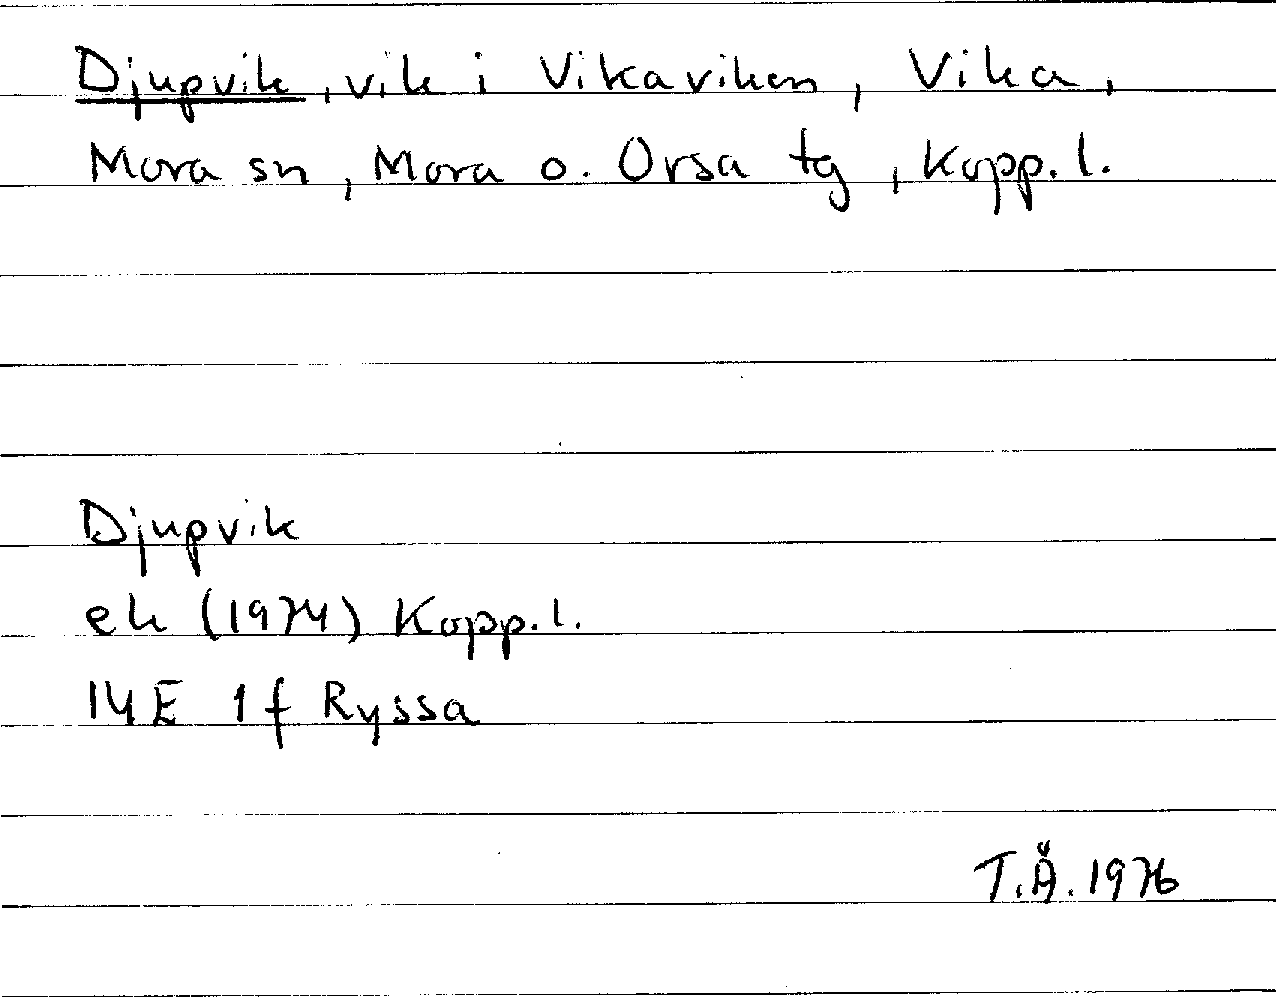 Djupvik, vik i Vikaviken, Vika,
Mora sn, Mora o. Orsa tg, Kopp. l.
Djupvik
ek (1974) Kopp. l.
14E 1f Ryssa
T.Å. 1976